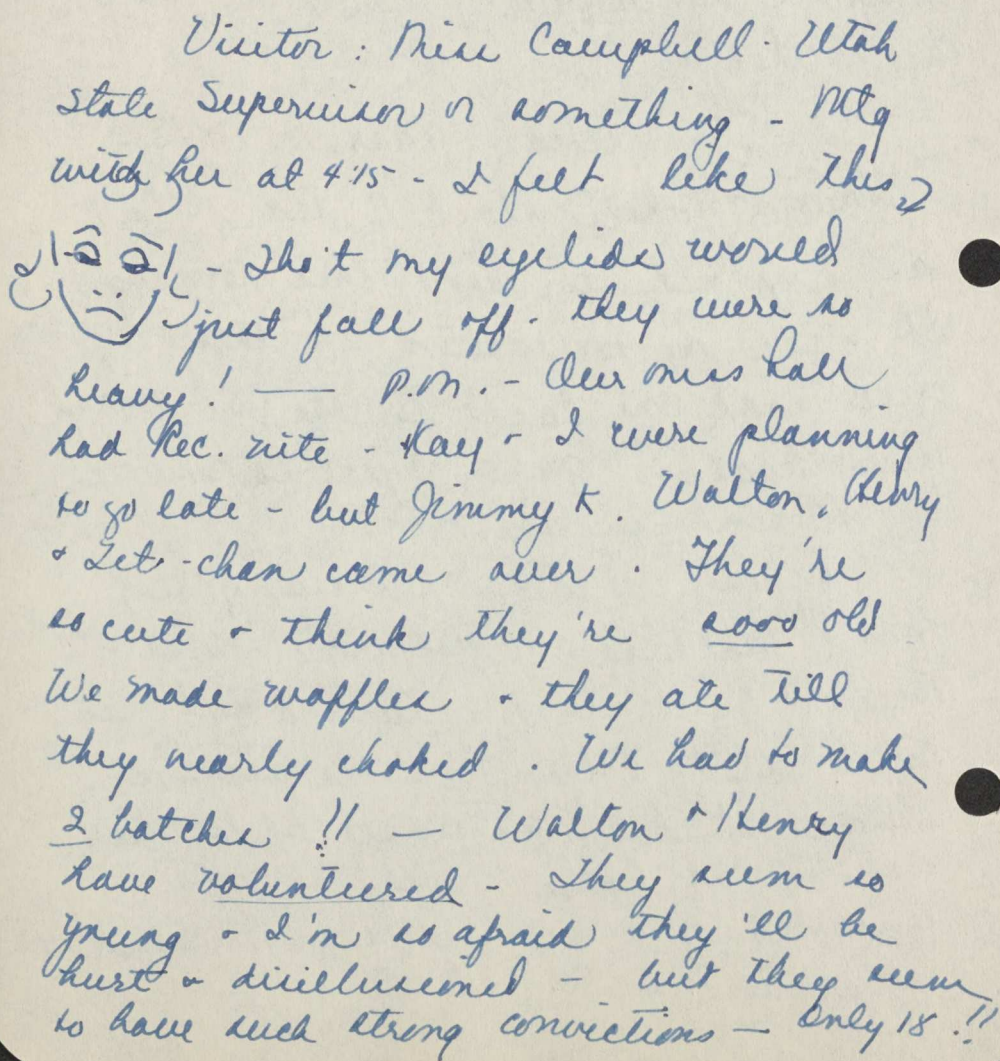 Visitor : Miss Campbell - Utah
state Supervisor or something - Mtg
with her at 4:15 - I felt like this
- Tho't my eyelids would
just fall off - they were so
heavy! — P.M. - Our mess hall
had Rec. nite - Kay + I were planning
to go late - but Jimmy K. Walton, Henry
+ Tet-chan came over. They're
so cute + think they're sooo old
We made waffles + they ate till
they nearly choked. We had to make
2 batches !! — Walton + Henry
have volunteered - They seem so
young + I'm so afraid they'll be
hurt + disillusioned - but they seem
to have such strong convictions — Only 18 !!